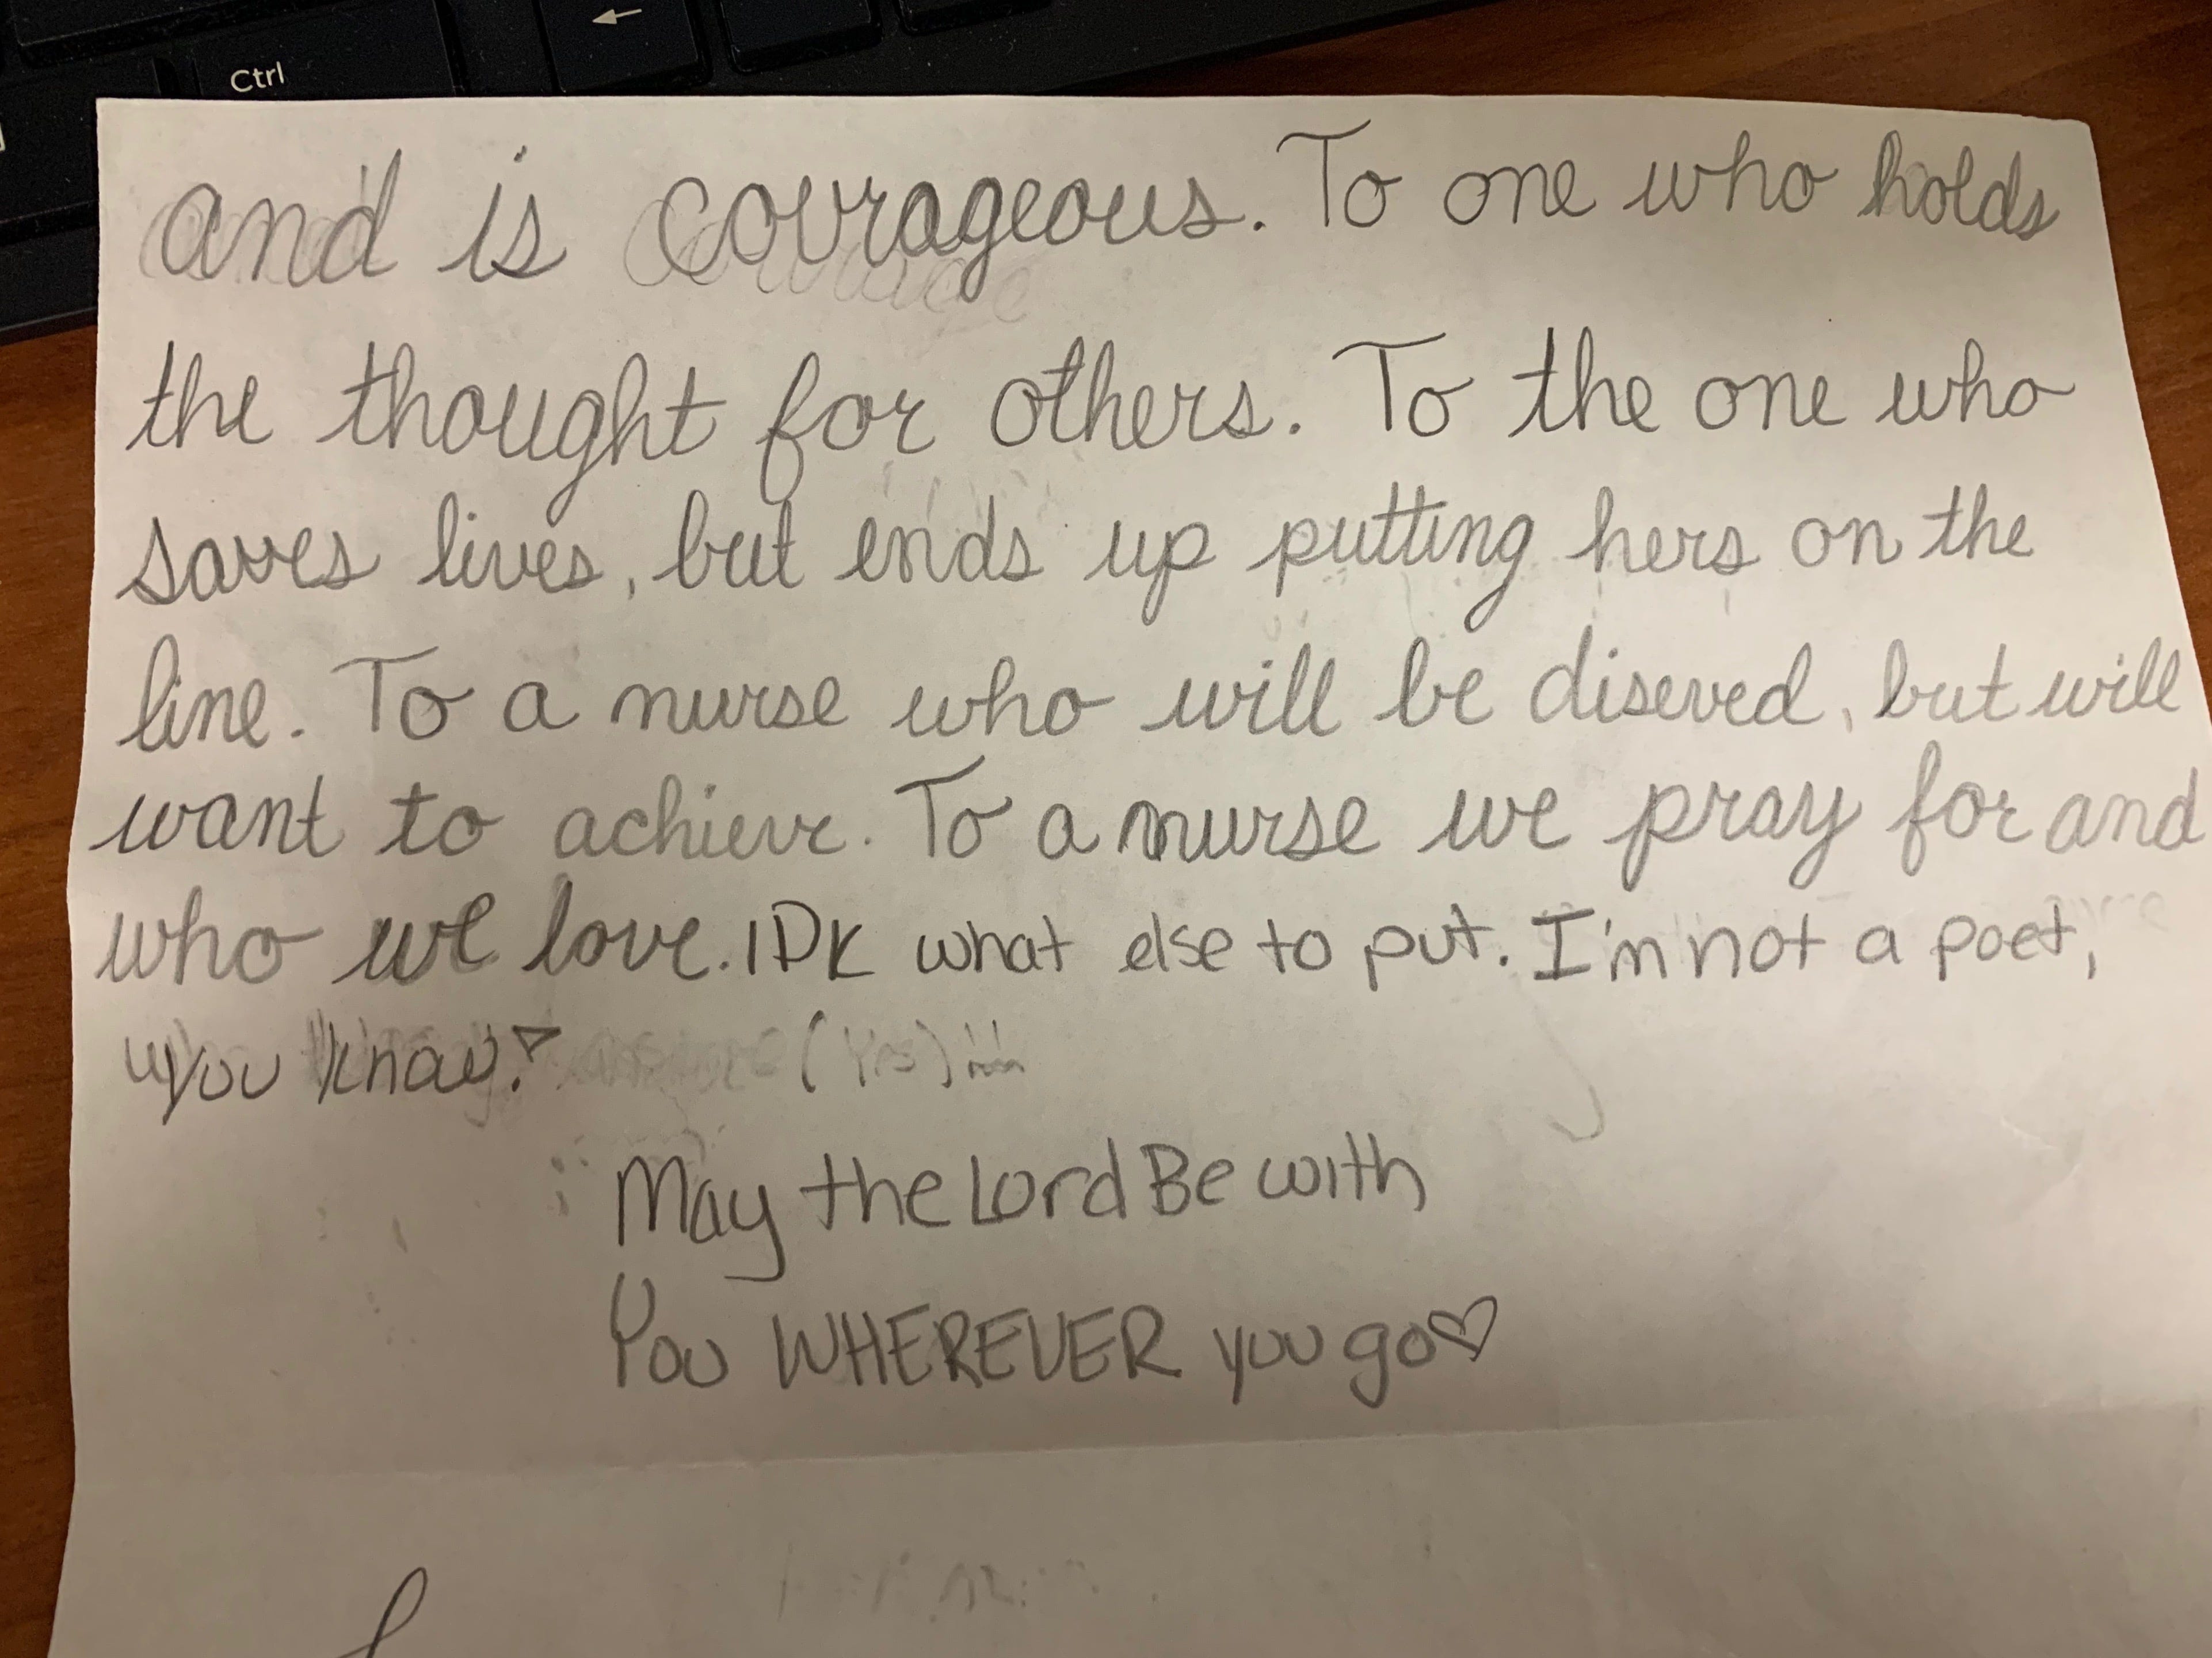 Ctrl
←
and is courageous. To one who holds
the thought for others. To the one who
saves lives, but ends up putting hers on the
line. To a nurse who will be diserved, but will
want to achieve. To a nurse we pray for and
who we love. IDK what else to put. I'm not a poet,
you know?
(Yes)
May the Lord Be with
You WHEREVER you go♡